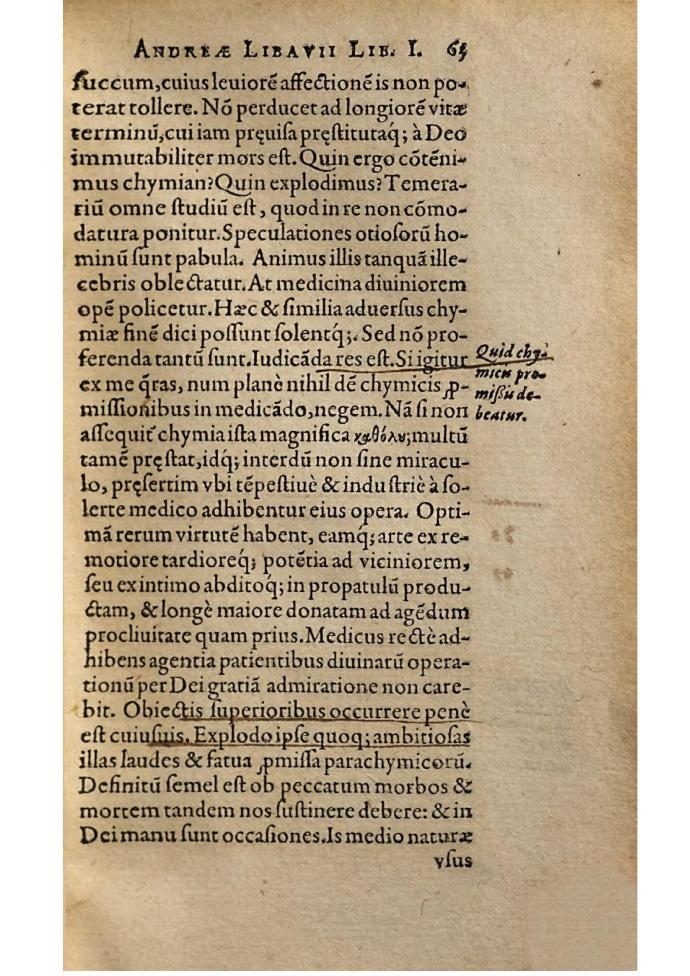 ANDREÆ LIBAVII LIB. I. 65
ſuccum, cuius leuiorē affectionē is non po-
terat tollere. Nō perducet ad longiorē vitæ
terminū, cui iam pręuiſa pręſtitutaq́;; à Deo
immutabiliter mors eſt. Quin ergo cōtēni-
mus chymian? Quin explodimus? Temera-
riū omne ſtudiū eſt, quod in re non cōmo-
datura ponitur. Speculationes otioſorū ho-
minū ſunt pabula. Animus illis tanquā ille-
cebris oblectatur. At medicina diuiniorem
opē policetur. Hæc & ſimilia aduerſus chy-
miæ finē dici poſſunt ſolentq́;. Sed nō pro-
ferenda tantū ſunt. Iudicāda res eſt. Si igitur
ex me q̄ras, num planè nihil dē chymicis ꝓ-
miſſionibus in medicādo, negem. Nā ſi non
aſſequit̃ chymia iſta magnifica καθόλου; multū
tamē pręſtat, idq́; interdū non ſine miracu-
lo, pręſertim vbi tēpeſtiuè & induſtriè à ſo-
lerte medico adhibentur eius opera. Opti-
mā rerum virtutē habent, eamq́; arte ex re-
motiore tardioreq́; potētia ad viciniorem,
ſeu ex intimo abditoq́; in propatulū produ-
ctam, & longè maiore donatam ad agēdum
procliuitate quam prius. Medicus rectè ad-
hibens agentia patientibus diuinarū opera-
tionū per Dei gratiā admiratione non care-
bit. Obiectis ſuperioribus occurrere penè
eſt cuiuſuis. Explodo ipſe quoq; ambitioſas
illas laudes & fatua ꝓmiſſa parachymicorū.
Definitū ſemel eſt ob peccatum morbos &
mortem tandem nos ſuſtinere debere: & in
Dei manu ſunt occaſiones. Is medio naturæ
vſus
Quid chy-
micis pro-
miſſis de-
beatur.